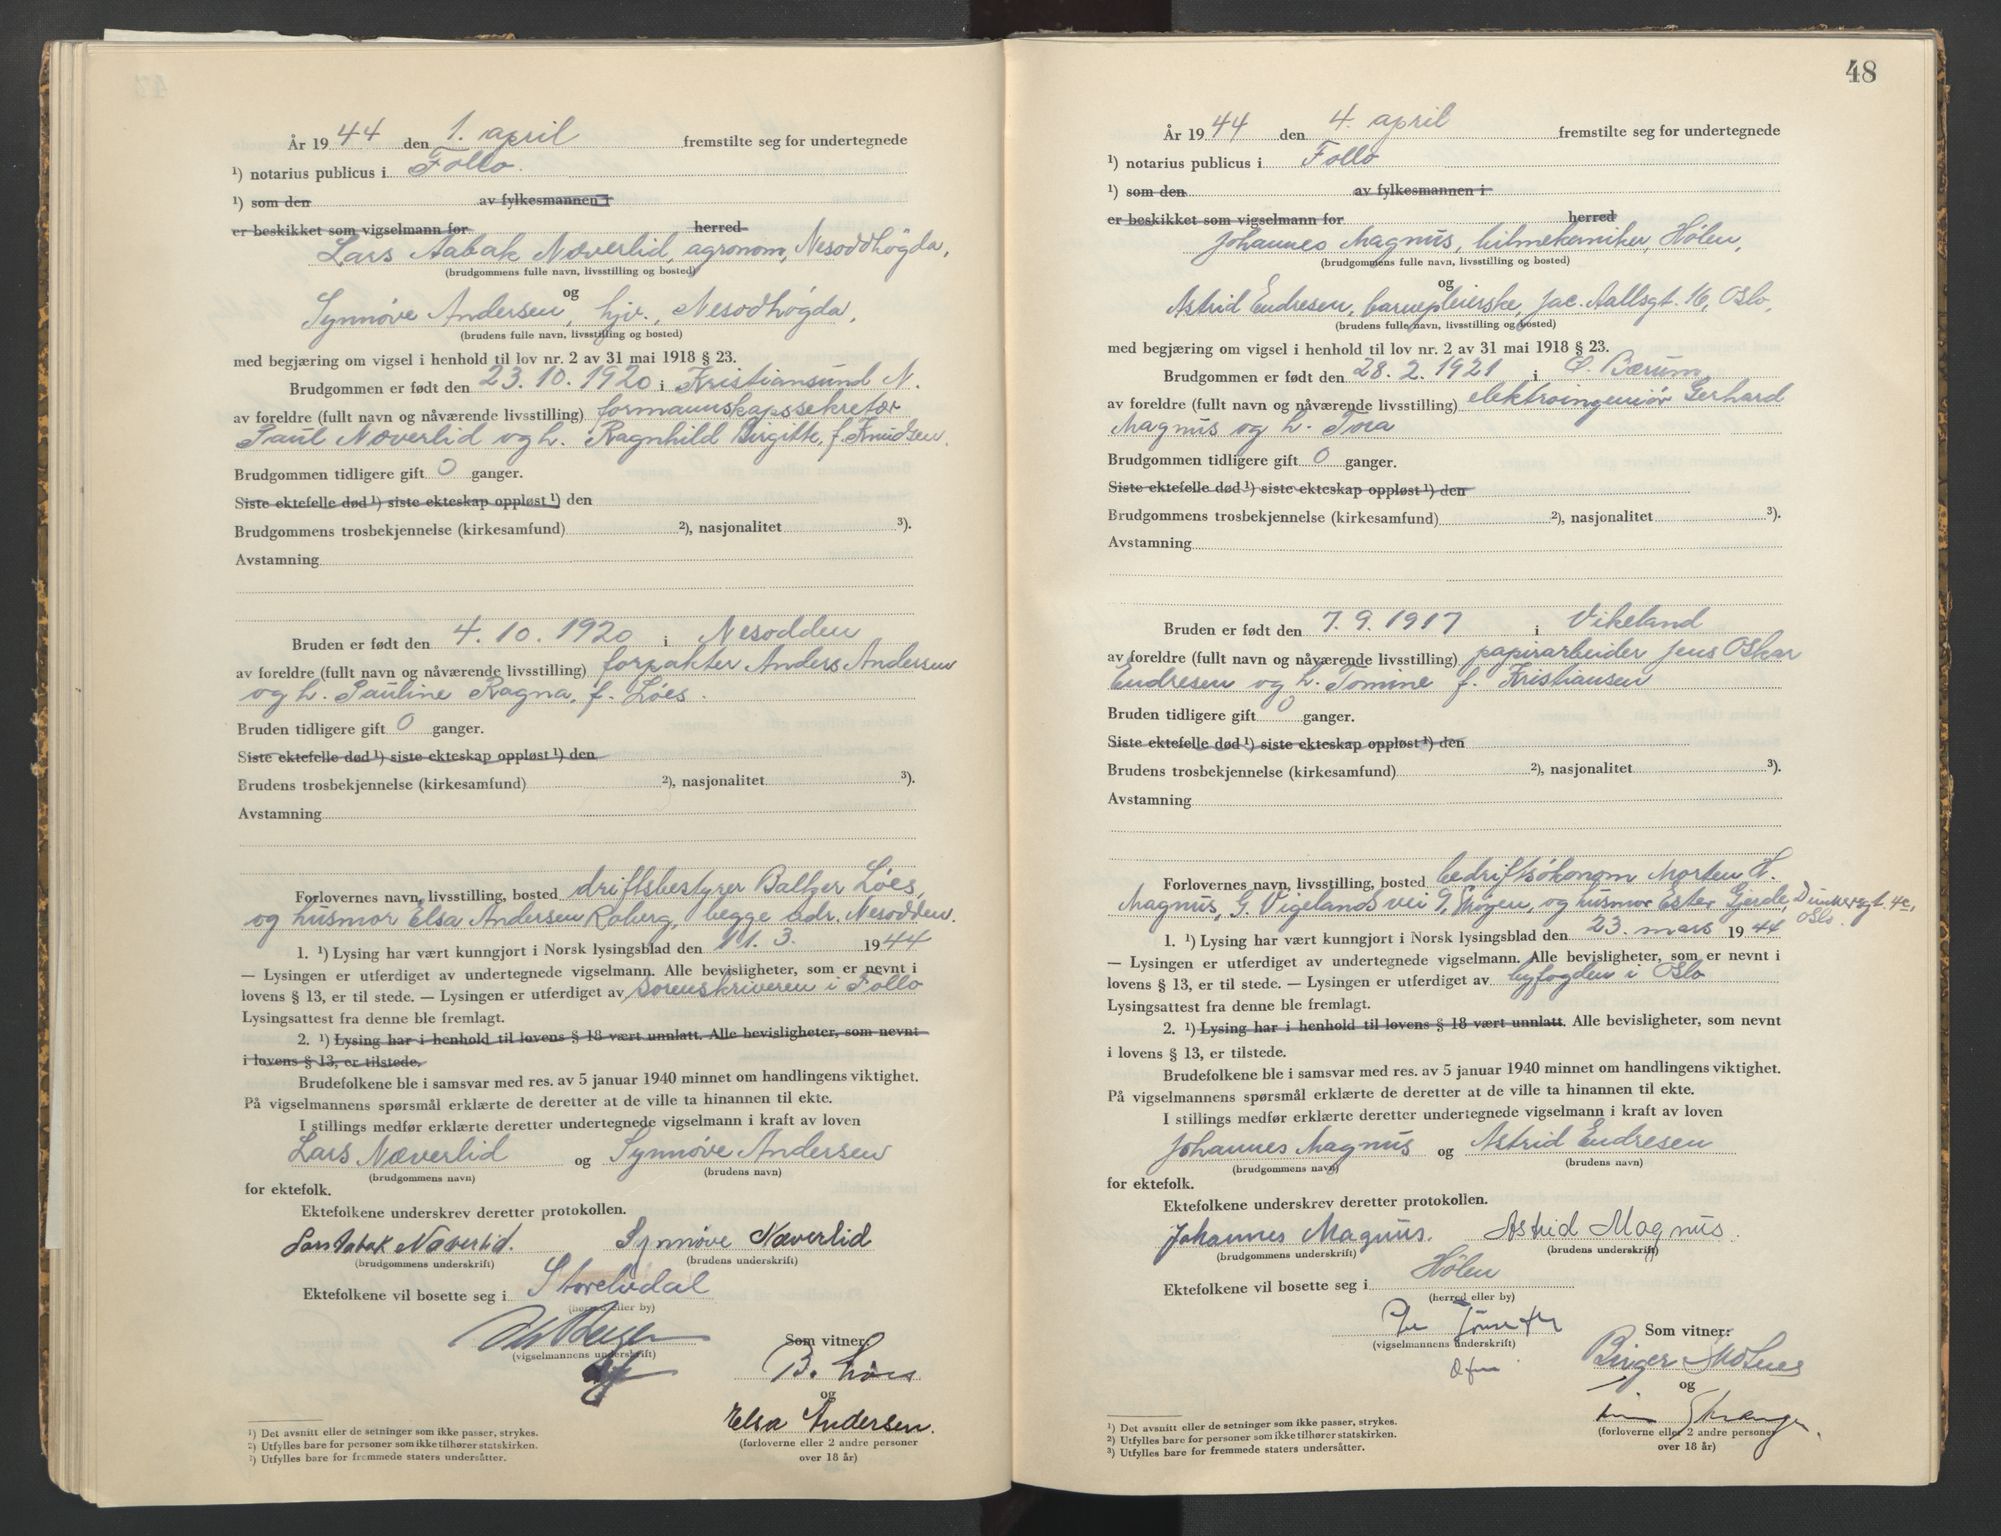 År 1944 den 1. april fremstilte seg for undertegnede
¹) notarius publicus i Follo.
¹) som den av fylkesmannen i
er beskikket som vigselmann for herred
Lars Aabak Næverlid, agronom, Nesoddhøgda,
(brudgommens fulle navn, livsstilling og bosted)
og
Synnøve Andersen, hjv., Nesodhøgda,
(brudens fulle navn, livsstilling og bosted)
med begjæring om vigsel i henhold til lov nr. 2 av 31 mai 1918 § 23.
Brudgommen er født den 23. 10. 1920 i Kristiansund N.
av foreldre (fullt navn og nåværende livsstilling) formannskapssekretær
Paul Næverlid og h. Ragnhild Birgitte, f. Knudsen.
Brudgommen tidligere gift 0 ganger.
Siste ektefelle død ¹) siste ekteskap oppløst ¹) den
Brudgommens trosbekjennelse (kirkesamfund) ²), nasjonalitet ³).
Avstamning
Bruden er født den 4. 10. 1920 i Nesodden
av foreldre (fullt navn og nåværende livsstilling) forpakter Anders Andersen
og h. Pauline Ragna, f. Løes.
Bruden tidligere gift 0 ganger.
Siste ektefelle død ¹) siste ekteskap oppløst ¹) den
Brudens trosbekjennelse (kirkesamfund) ²), nasjonalitet ³).
Avstamning
Forlovernes navn, livsstilling, bosted driftsbestyrer Baltzer Løes,
og husmor Elsa Andersen Roberg, begge adr. Nesodden.
1. ¹) Lysing har vært kunngjort i Norsk lysingsblad den 11. 3. 1944
— Lysingen er utferdiget av undertegnede vigselmann. Alle bevisligheter, som er nevnt i
lovens § 13, er til stede. — Lysingen er utferdiget av sorenskriveren i Follo
Lysingsattest fra denne ble fremlagt.
2. ¹) Lysing har i henhold til lovens § 18 vært unnlatt. Alle bevisligheter, som nevnt
i lovens § 13, er tilstede.
Brudefolkene ble i samsvar med res. av 5 januar 1940 minnet om handlingens viktighet.
På vigselmannens spørsmål erklærte de deretter at de ville ta hinannen til ekte.
I stillings medfør erklærte deretter undertegnede vigselmann i kraft av loven
Lars Næverlid og Synnøve Andersen
(brudgommens navn) (brudens navn)
for ektefolk.
Ektefolkene underskrev deretter protokollen.
Lars Aabak Næverlid. Synnøve Næverlid
(brudgommens underskrift) (brudens underskrift)
Ektefolkene vil bosette seg i Storelvdal
(herred eller by)
Som vitner:
(vigselmannens underskrift)
B. Løes
og
Elsa Andersen.
(forloverne eller 2 andre personer
over 18 år)
¹) Det avsnitt eller de setninger som ikke passer, strykes.
²) Utfylles bare for personer som ikke tilhører statskirken.
³) Utfylles bare for fremmede staters undersåtter.
48
År 1944 den 4. april fremstilte seg for undertegnede
¹) notarius publicus i Follo
¹) som den av fylkesmannen i
er beskikket som vigselmann for herred
Johannes Magnus, bilmekaniker, Hølen,
(brudgommens fulle navn, livsstilling og bosted)
og
Astrid Endresen, barnepleierske, Jac. Aallsgt. 16, Oslo,
(brudens fulle navn, livsstilling og bosted)
med begjæring om vigsel i henhold til lov nr. 2 av 31 mai 1918 § 23.
Brudgommen er født den 28. 2. 1921 i Ø. Bærum
av foreldre (fullt navn og nåværende livsstilling) elektroingeniør Gerhard
Magnus og h. Tora
Brudgommen tidligere gift 0 ganger.
Siste ektefelle død ¹) siste ekteskap oppløst ¹) den
Brudgommens trosbekjennelse (kirkesamfund) ²), nasjonalitet ³).
Avstamning
Bruden er født den 7. 9. 1917 i Vikeland
av foreldre (fullt navn og nåværende livsstilling) papirarbeider Jens Oskar
Endresen og h. Tomine f. Kristiansen
Bruden tidligere gift 0 ganger.
Siste ektefelle død ¹) siste ekteskap oppløst ¹) den
Brudens trosbekjennelse (kirkesamfund) ²), nasjonalitet ³).
Avstamning
Forlovernes navn, livsstilling, bosted bedriftsøkonom Morten H.
Magnus, G. Vigelands vei 9, og husmor Ester Gjerde, Dunkersgt. 4c,
Oslo.
1. ¹) Lysing har vært kunngjort i Norsk lysingsblad den 23. mars 1944
— Lysingen er utferdiget av undertegnede vigselmann. Alle bevisligheter, som er nevnt i
lovens § 13, er til stede. — Lysingen er utferdiget av byfogden i Oslo
Lysingsattest fra denne ble fremlagt.
2. ¹) Lysing har i henhold til lovens § 18 vært unnlatt. Alle bevisligheter, som nevnt
i lovens § 13, er tilstede.
Brudefolkene ble i samsvar med res. av 5 januar 1940 minnet om handlingens viktighet.
På vigselmannens spørsmål erklærte de deretter at de ville ta hinannen til ekte.
I stillings medfør erklærte deretter undertegnede vigselmann i kraft av loven
Johannes Magnus og Astrid Endresen
(brudgommens navn) (brudens navn)
for ektefolk.
Ektefolkene underskrev deretter protokollen.
Johannes Magnus. Astrid Magnus.
(brudgommens underskrift) (brudens underskrift)
Ektefolkene vil bosette seg i Hølen
(herred eller by)
Som vitner:
(vigselmannens underskrift)
Birger
og
(forloverne eller 2 andre personer
over 18 år)
¹) Det avsnitt eller de setninger som ikke passer, strykes.
²) Utfylles bare for personer som ikke tilhører statskirken.
³) Utfylles bare for fremmede staters undersåtter.